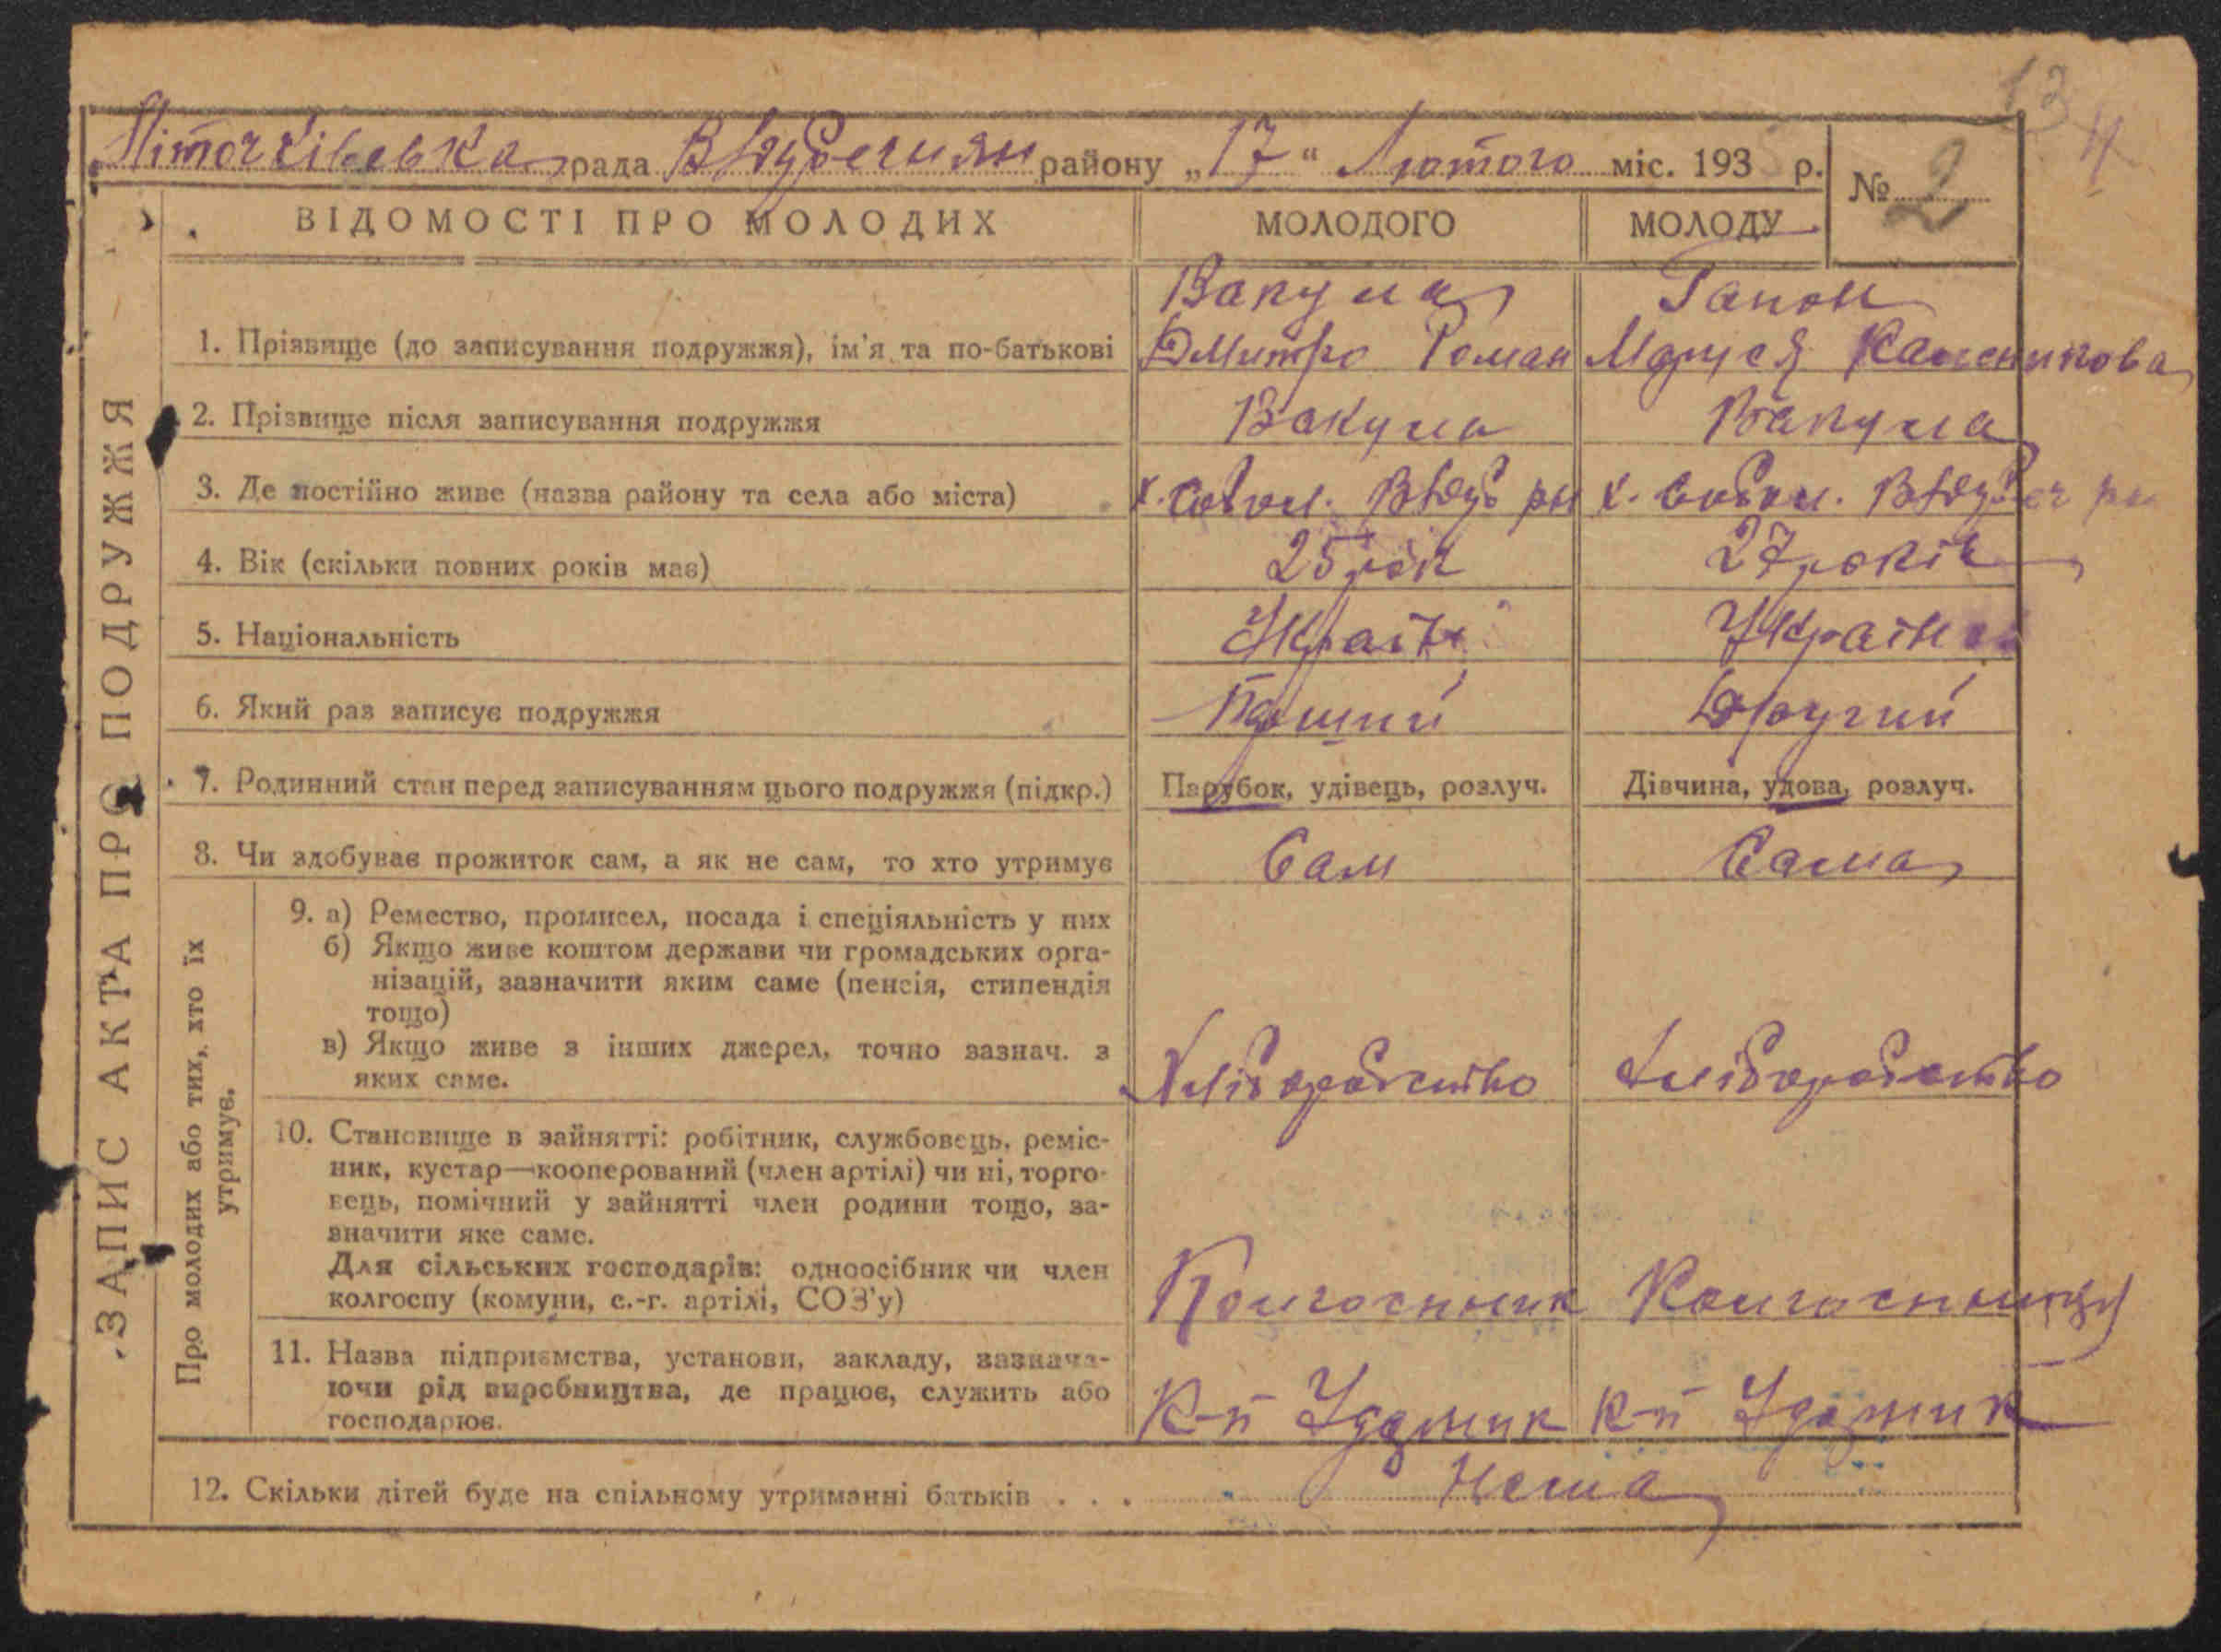 13
рада района „17“ Лютого міс. 193 р. № 2
ВІДОМОСТІ ПРО МОЛОДИХ МОЛОДОГО МОЛОДУ
ЗАПИС АКТА ПРО ПОДРУЖЖЯ
Вакула Гапон
1. Прізвище (до записування подружжя), ім'я та по-батькові Дмитро Роман Маруся
2. Прізвище після записування подружжя Вакула Вакула
3. Де постійно живе (назва району та села або міста) х.
4. Вік (скільки повних років має) 25 рок 27 років
5. Національність Україн Україн
6. Який раз записує подружжя Перший Другий
7. Родинний стан перед записуванням цього подружжя (підкр.) Парубок, удівець, розлуч. Дівчина, удова, розлуч.
8. Чи здобуває прожиток сам, а як не сам, то хто утримує Сам Сама
Про молодих або тих, хто їх
утримує.
9. а) Ремество, промисел, посада і спеціяльність у них
б) Якщо живе коштом держави чи громадських орга-
нізацій, зазначити яким саме (пенсія, стипендія
тощо)
в) Якщо живе з інших джерел, точно зазнач. з
яких саме. Хліборобство Хліборобство
10. Становище в зайнятті: робітник, службовець, реміс-
ник, кустар—кооперований (член артілі) чи ні, торго-
вець, помічний у зайнятті член родини тощо, за-
значити яке саме.
Для сільських господарів: одноосібник чи член
колгоспу (комуни, с.-г. артілі, СОЗ'у) Колгоспник Колгоспниця
11. Назва підприємства, установи, закладу, зазнача-
ючи рід виробництва, де працює, служить або
господарює. К-п Ударник К-п Ударник
12. Скільки дітей буде на спільному утриманні батьків . . . Нема